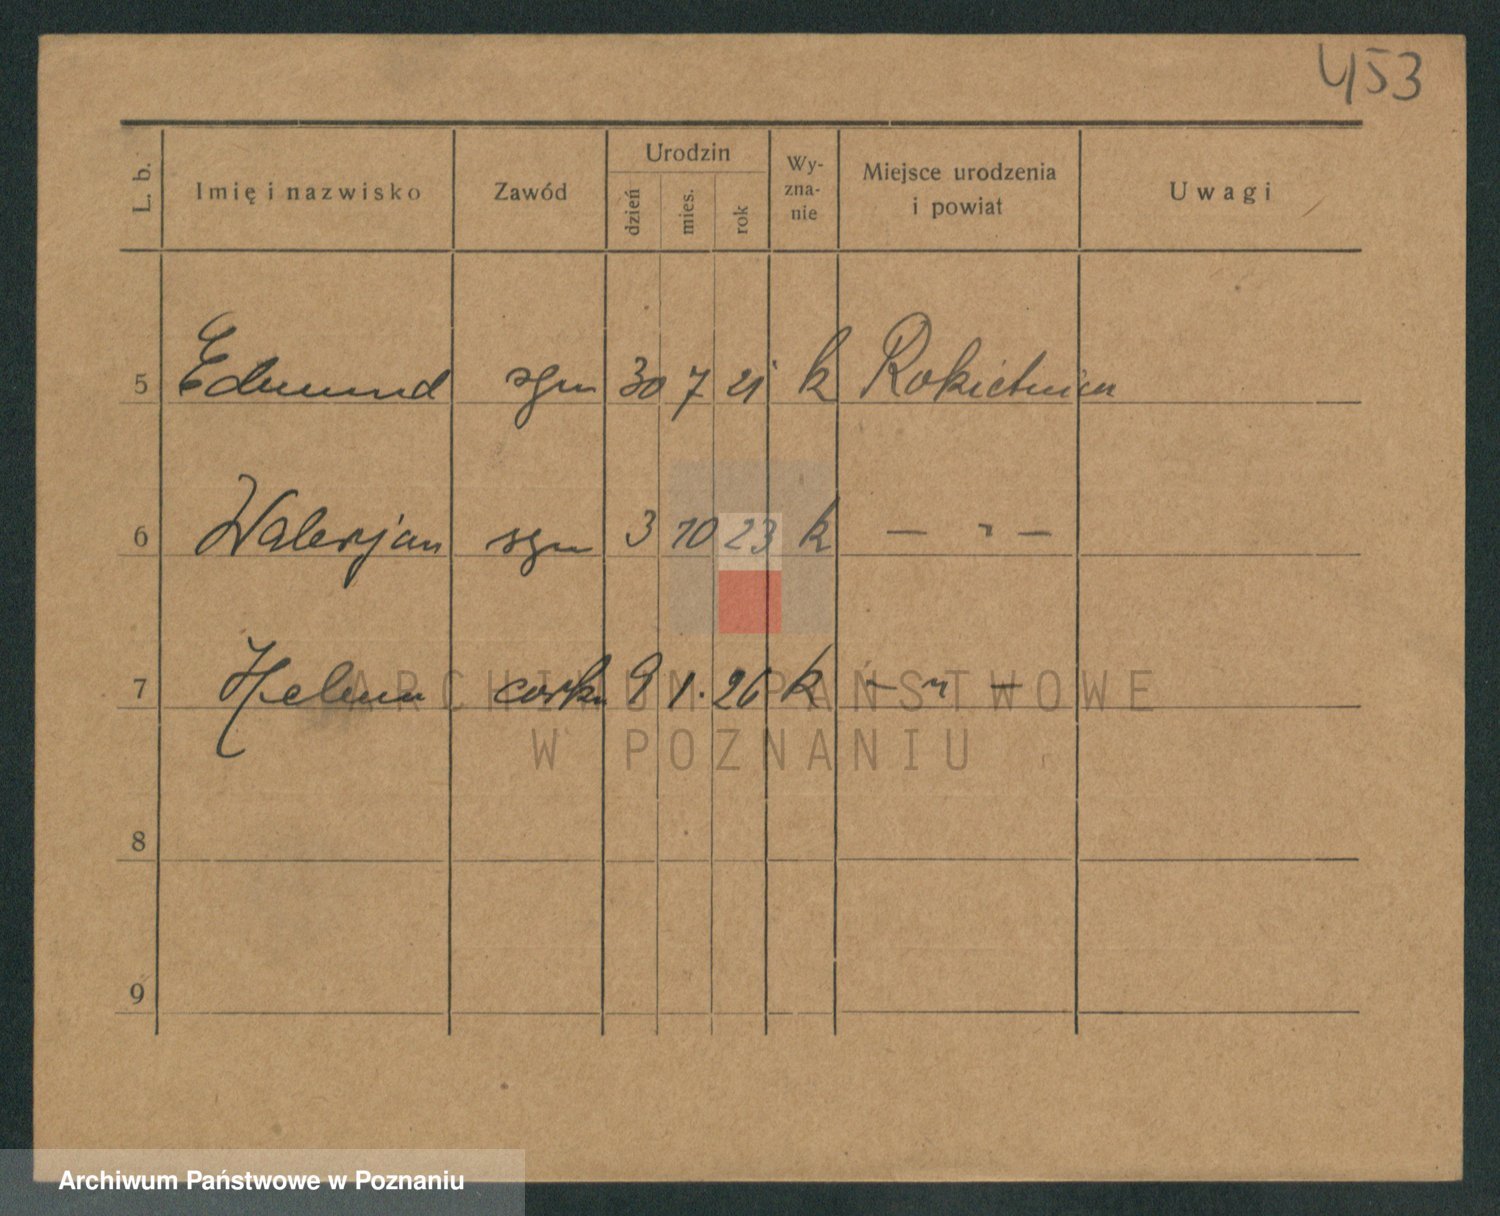 453
L. b. Imię i nazwisko Zawód Urodzin dzień mies. rok Wy-zna-nie Miejsce urodzenia i powiat Uwagi
5 Edmund syn 30 7 21 k Rokietnica
6 Walerjan syn 3 10 23 k — " —
7 Helena corka 9 1. 26 k — " —
8
9
ARCHIWUM PAŃSTWOWE
W POZNANIU
Archiwum Państwowe w Poznaniu